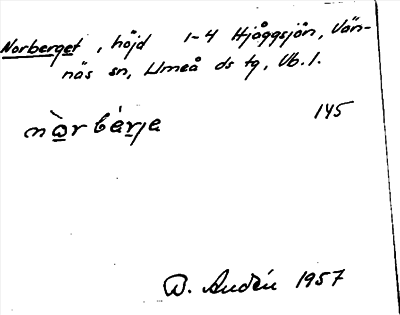 Norberget, höjd 1-4 Hjåggsjön, Vän-
näs sn, Umeå ds tg, Vb. l.
nòrbèrje 145
D. Andén 1957